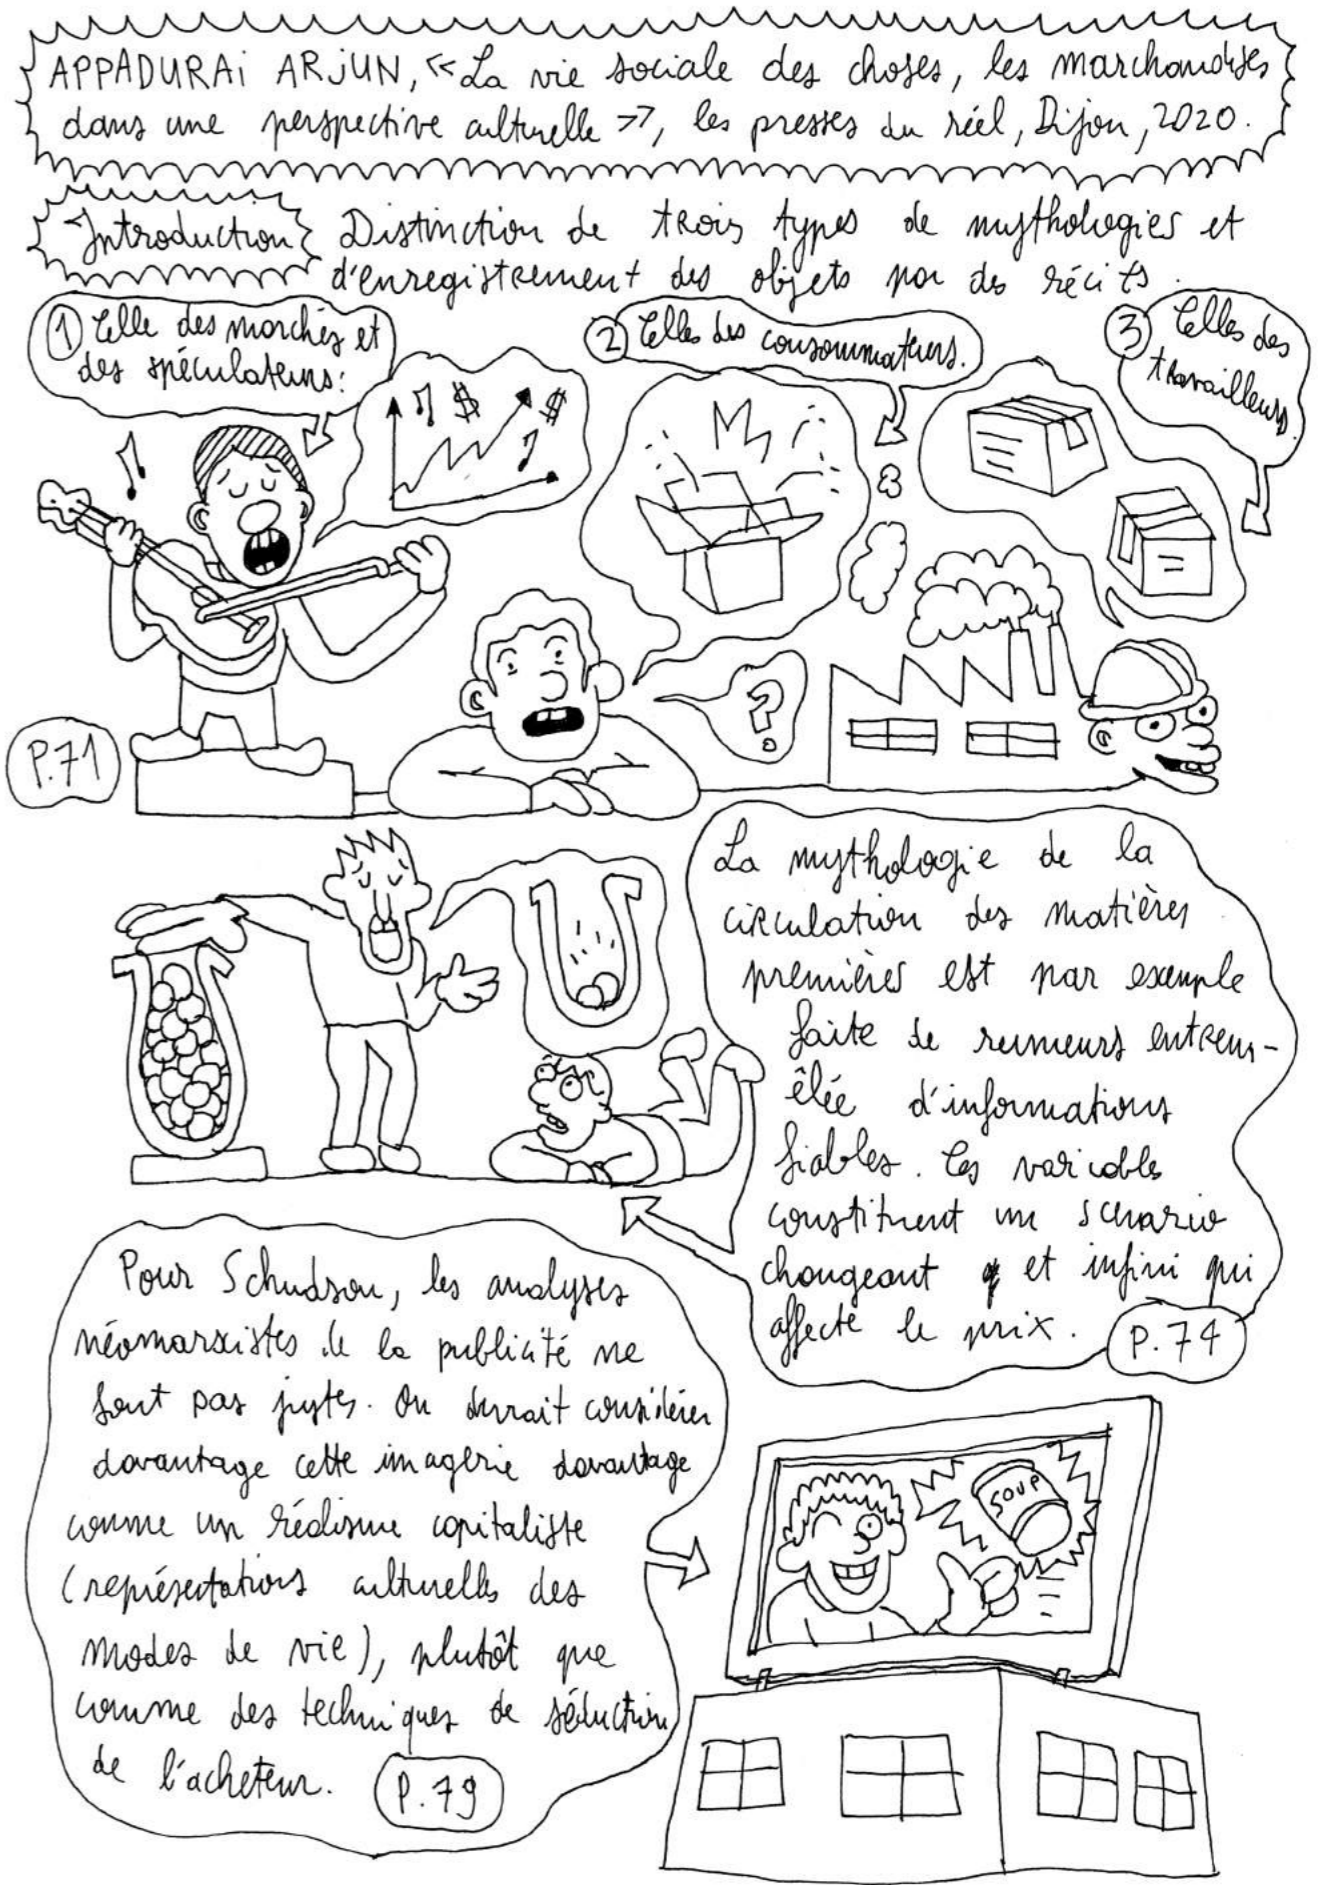 APPADURAi ARJUN, «La vie sociale des choses, les marchandises
dans une perspective culturelle», les presses du réel, Dijon, 2020.
Introduction
Distinction de trois types de mythologies et
d'enregistrement des objets par des récits.
1 Celle des marchés et
des spéculateurs:
2 Celles des consommateurs.
3 Celles des
travailleurs.
$ $
?
P.71
La mythologie de la
circulation des matières
premières est par exemple
faite de rumeurs entrem-
êlée d'informations
fiables. Ces variables
constituent un scénario
changeant et infini qui
affecte le prix.
P.74
Pour Schudson, les analyses
néomarxistes de la publicité ne
sont pas justes. On devrait considérer
davantage cette imagerie davantage
comme un réalisme capitaliste
(représentations culturelles des
modes de vie), plutôt que
comme des techniques de séduction
de l'acheteur.
P.79
SOUP